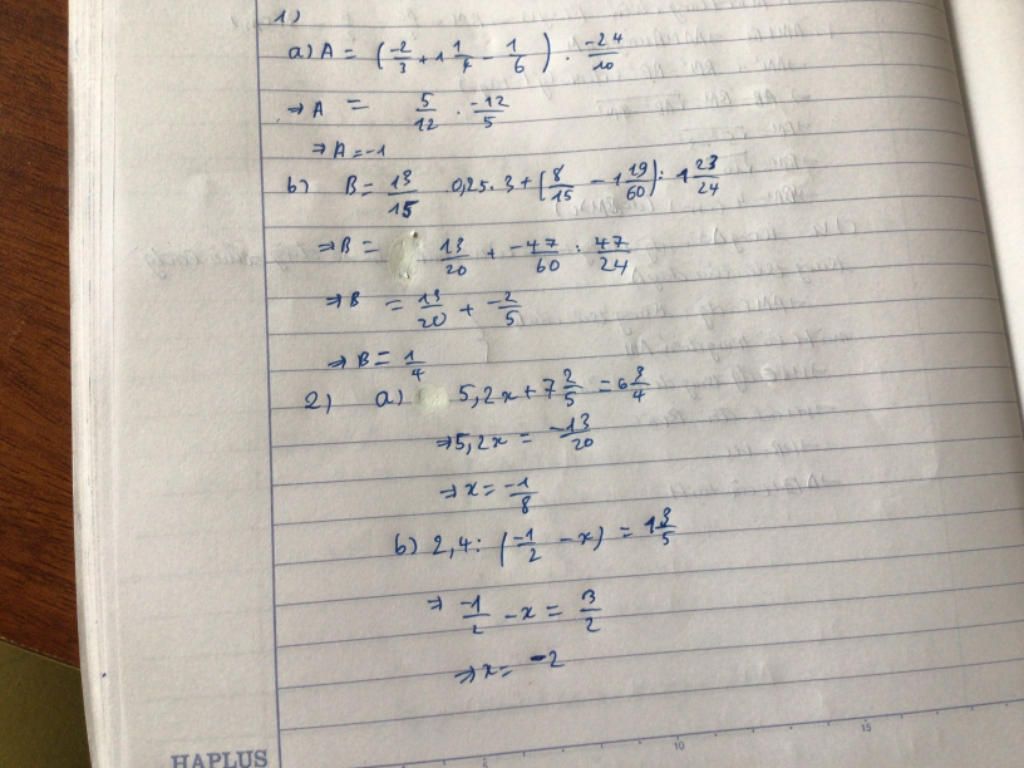 1)
a) A = (-2/3 + 1 1/4 - 1/6) . -24/10
⇒ A = 5/12 . -12/5
⇒ A = -1
b) B = 13/15 0,25.3 + (8/15 - 1 19/60) : 1 23/24
⇒ B = 13/20 + -47/60 : 47/24
⇒ B = 13/20 + -2/5
⇒ B = 1/4
2) a) 5,2x + 7 2/5 = 6 3/4
⇒ 5,2x = -13/20
⇒ x = -1/8
b) 2,4 : (-1/2 - x) = 1 3/5
⇒ -1/2 - x = 3/2
⇒ x = -2
HAPLUS
5 10 15